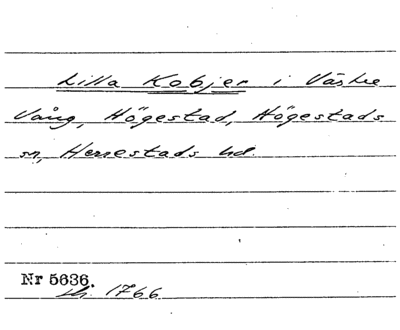 Lilla Kobjer i Västre
Vång, Högestad, Högestads
sn, Herrestads hd.
Nr 5636.
Lh. 1766